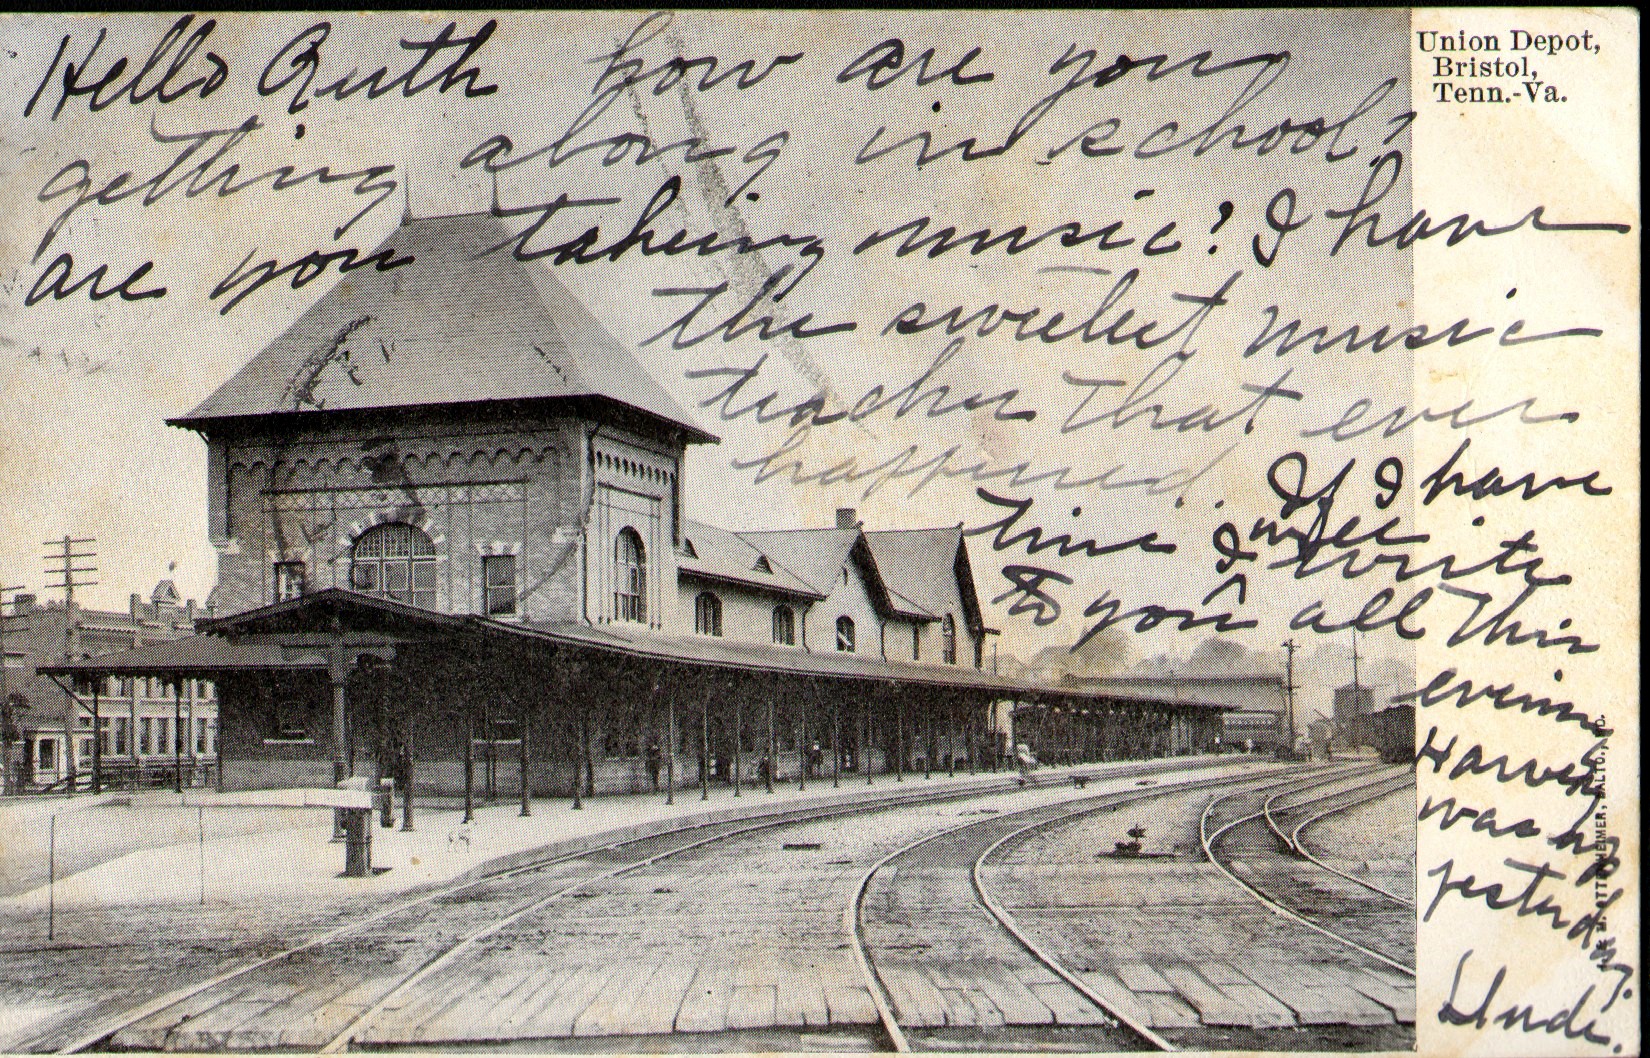 Union Depot,
Bristol,
Tenn.-Va.
Hello Ruth how are you
getting along in school?
are you taking music? I have
the sweetest music
teacher that ever
happened. If I have
time I will write
to you all this
evening
Harvey
was
yesterday.